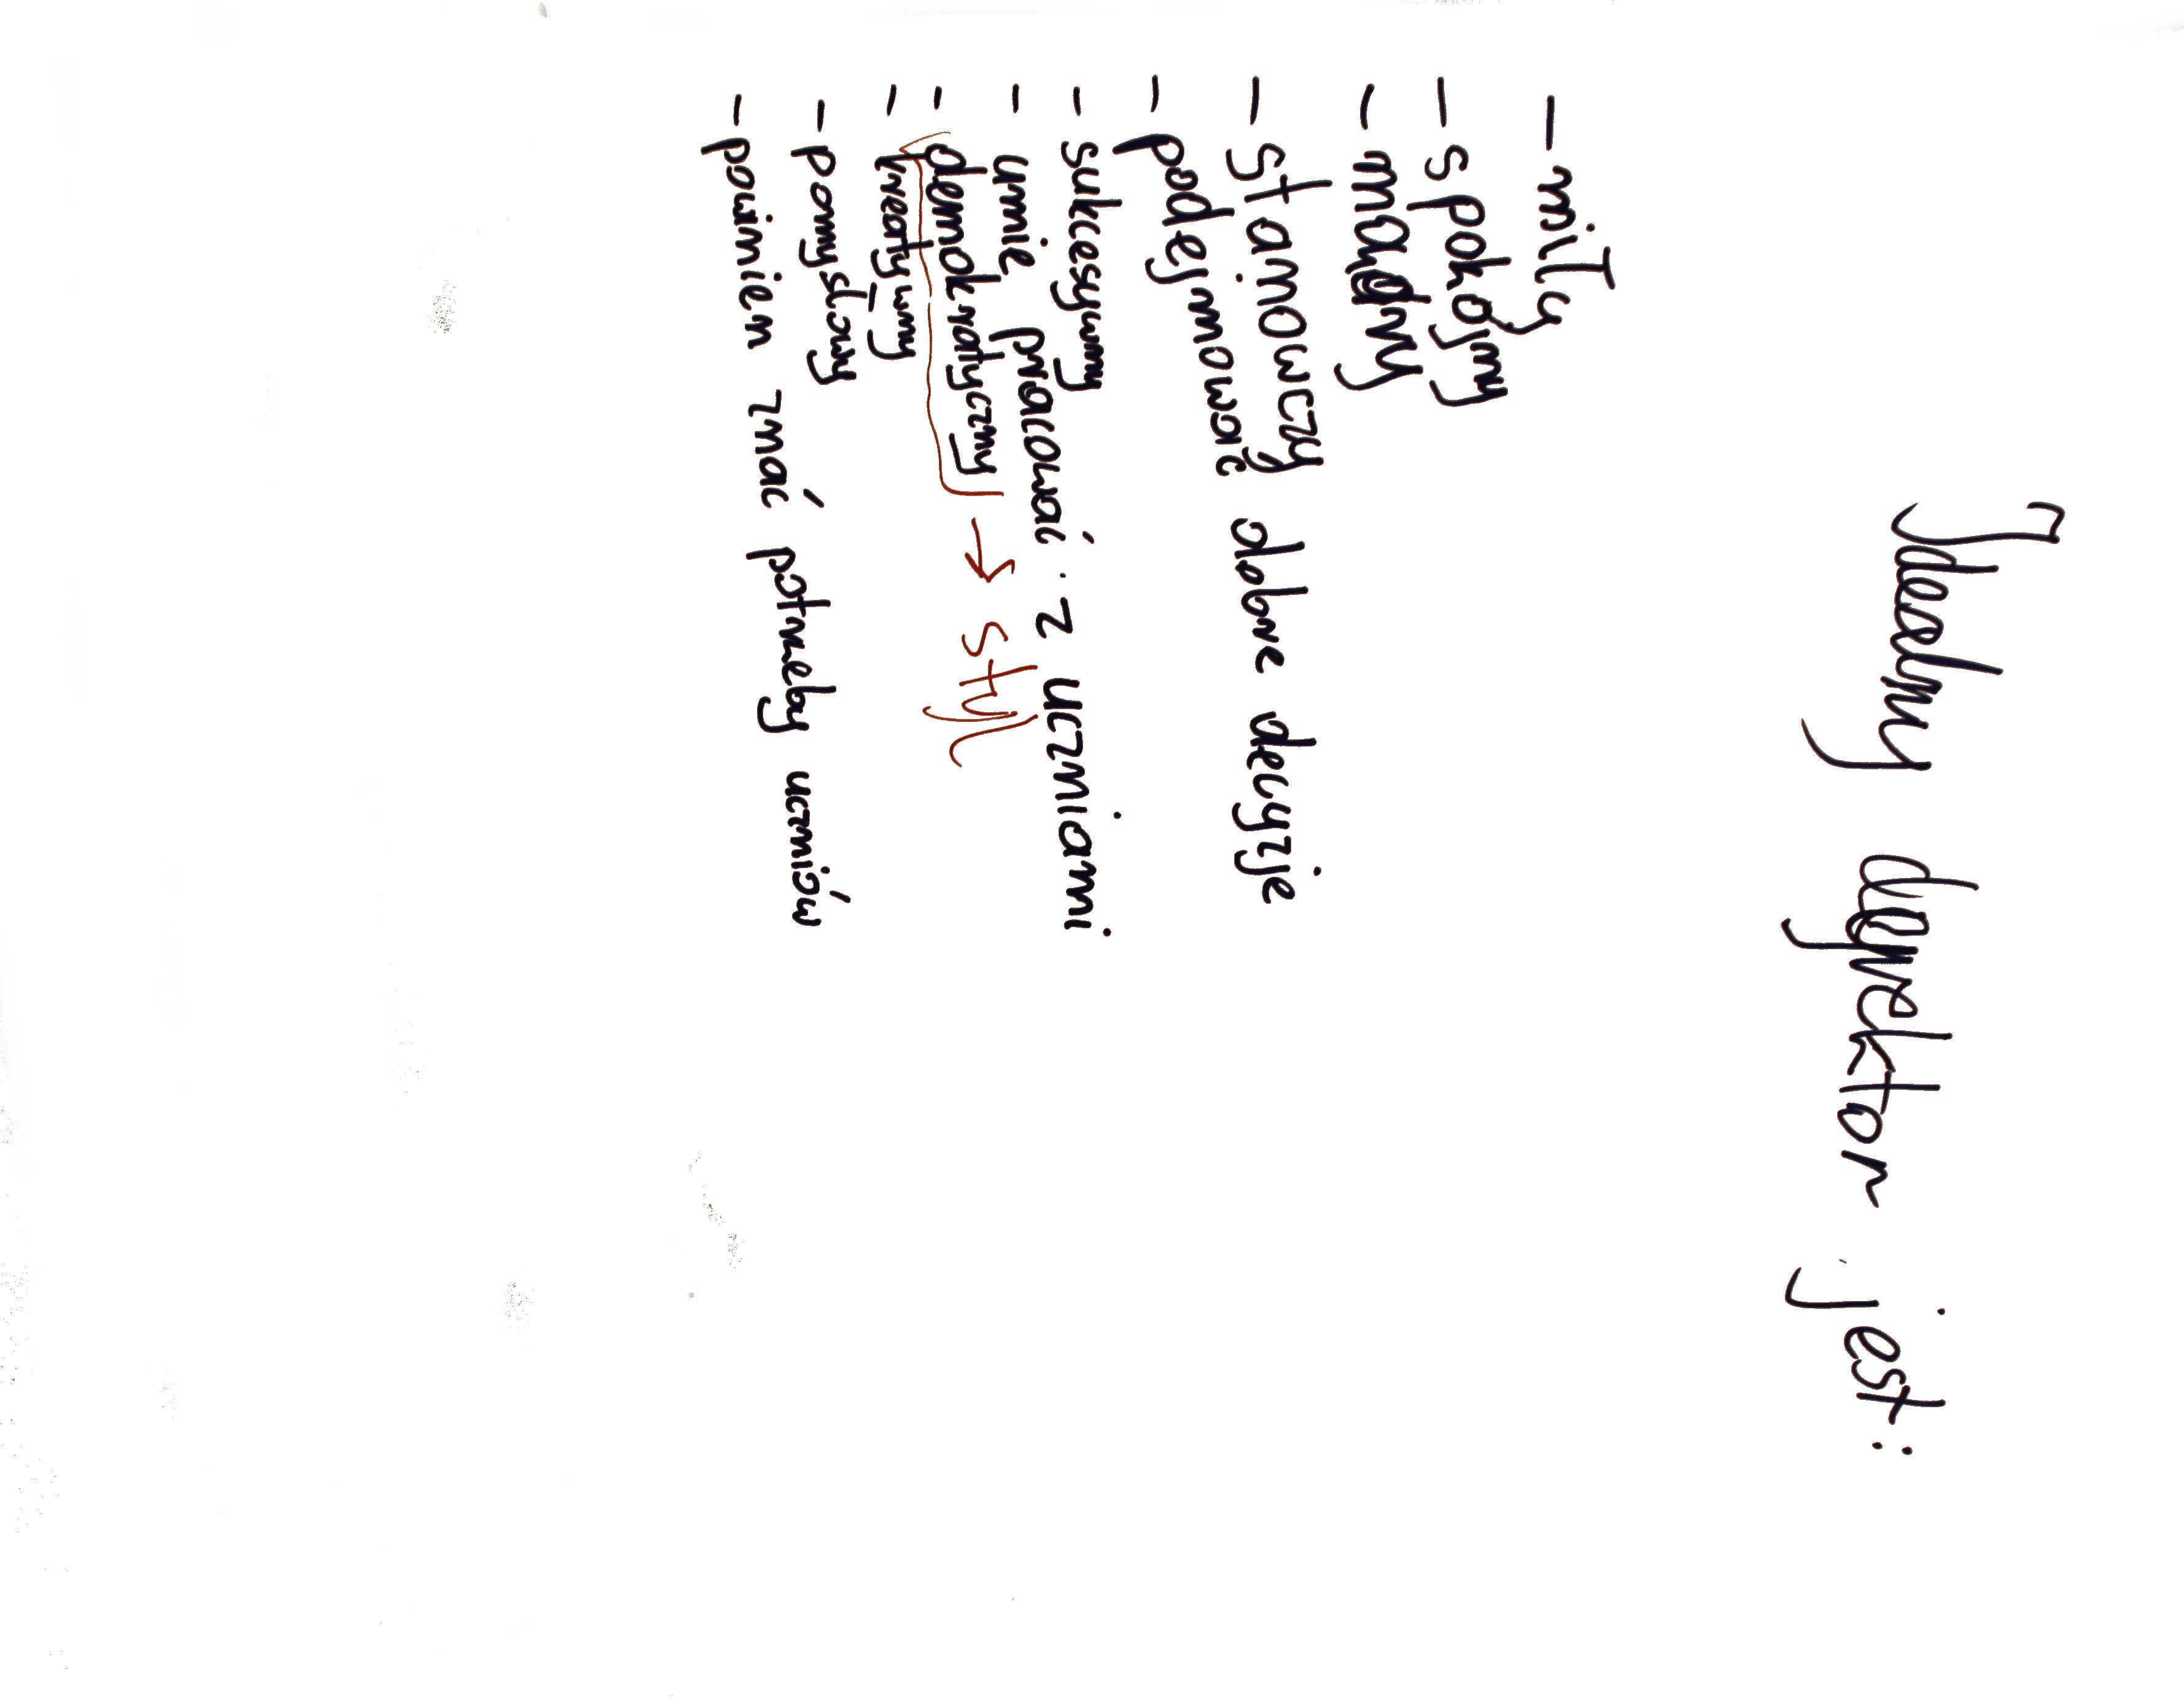 Idealny dyrektor jest:
- miły
- spokojny
- mądry
- stanowczy
- podejmować dobre decyzje
- sukcesywny
- umie pracować z uczniami
- demokratyczny → styl
- kreatywny
- pomysłowy
- powinien znać potrzeby uczniów